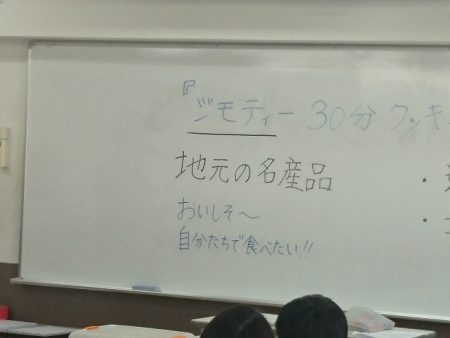 『ジモティー 30分クッキ
地元の名産品
おいしそ〜
自分たちで食べたい!!